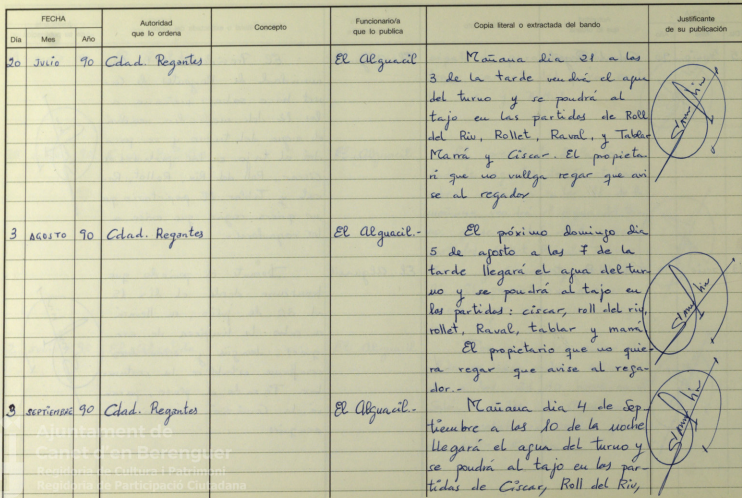 FECHA
Autoridad
que lo ordena
Concepto
Funcionario/a
que lo publica
Copia literal o extractada del bando
Justificante
de su publicación
Día Mes Año
20 JULIO 90 Cdad. Regantes El Alguacil Mañana dia 21 a las
3 de la tarde vendrá el agua
del turno y se pondrá al
tajo en las partidas de Roll
del Riu, Rollet, Raval, y Tablar
Marrá y Ciscar. El propieta
ri que no vullga regar que avi
se al regador
3 AGOSTO 90 Cdad. Regantes El Alguacil.- El próximo domingo dia
5 de agosto a las 7 de la
tarde llegará el agua del tur
no y se pondrá al tajo en
las partidas: ciscar, roll del riu,
rollet, Raval, tablar y marrá
El propietario que no quie
ra regar que avise al rega-
dor.-
3 SEPTIEMBRE 90 Cdad. Regantes El Alguacil.- Mañana dia 4 de Sep-
tiembre a las 10 de la noche
llegará el agua del turno y
se pondrá al tajo en las par-
tidas de Ciscar, Roll del Riu,
Ajuntament de
Canet d'en Berenguer
Regidoria de Cultura i Patrimoni
Regidoria de Participació Ciutadana